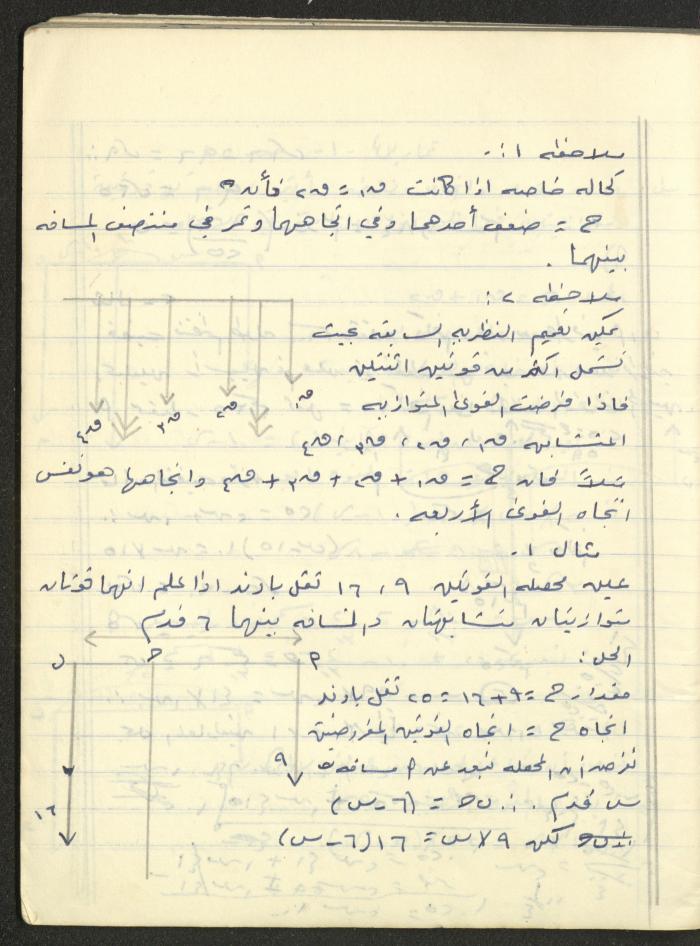 ملاحظه ١ :-
كحاله خاصه اذا كانت ق١ = ق٢ فأن
ح = ضعف أحدهما وفي اتجاههما وتمر في منتصف المسافه
بينهما .
ملاحظه ٢ :
يمكن تعميم النظريه السابقه بحيث
تشمل اكثر من قوتين اثنتين
فاذا فرضت القوى المتوازيه
ق١ ق٢ ق٣ ق٤
المتشابهه ق١ ، ق٢ ، ق٣ ، ق٤
مثلاً فان ح = ق١ + ق٢ + ق٣ + ق٤ واتجاهها هو نفس
اتجاه القوى الأربعه .
مثال ١ .
عين محصله القوتين ٩ ، ١٦ ثقل باوند اذا علم انهما قوتان
متوازيتان متشابهتان والمسافه بينهما ٦ قدم
الحل :
م ح ن
مقدار ح = ٩ + ١٦ = ٢٥ ثقل باوند
اتجاه ح = اتجاه القوتين المفروضتين
نفرض ان المحصله تبعد عن م مسافه
٩
س قدم . ∴ ن ح = (٦ - س)
١٦
لكن ٩ × س = ١٦ (٦ - س)